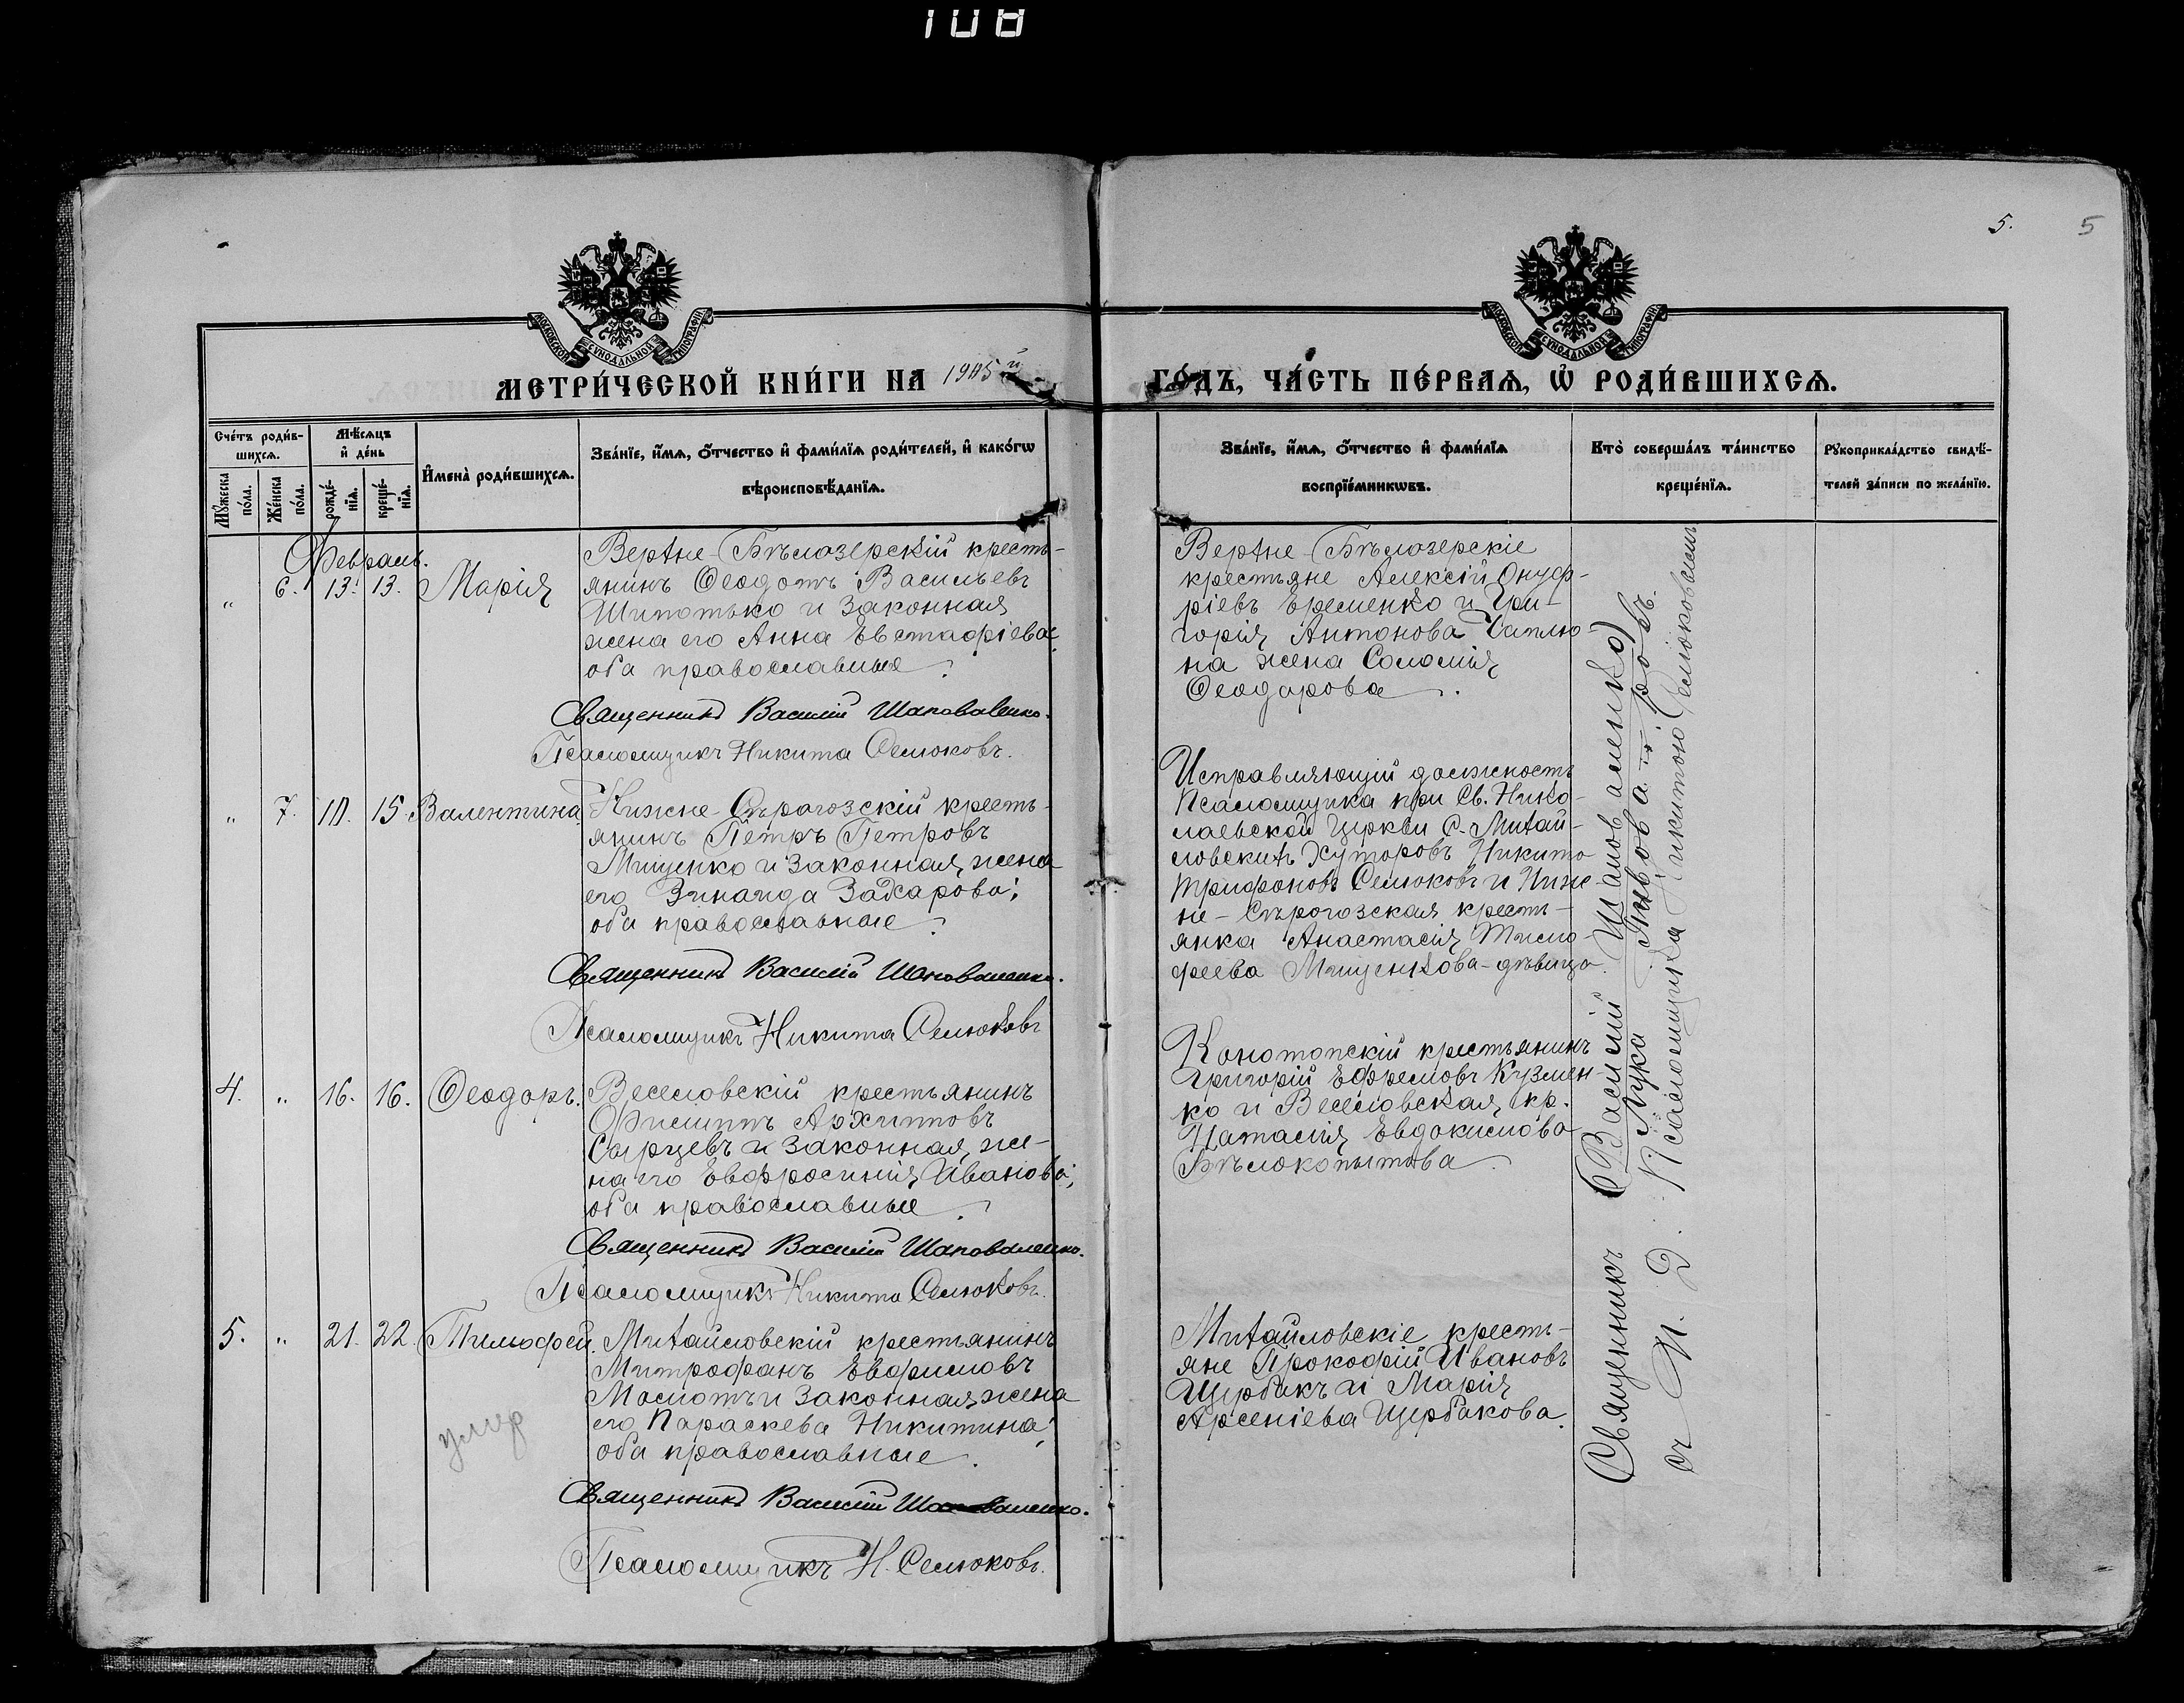 108
5.
5
МОСКОВСКОЙ СѴНОДАЛЬНОЙ ТИПОГРАФІИ
МОСКОВСКОЙ СѴНОДАЛЬНОЙ ТИПОГРАФІИ
МЕТРИ́ЧЕСКОЙ КНИ́ГИ НА 1905й
ГО́ДЪ, ЧА́СТЬ ПЕ́РВАѦ, Ѡ҆ РОДИ́ВШИХСѦ.
Сче́тъ роди́в-
шихсѧ.
Мꙋ́жеска по́ла.
Же́нска по́ла.
Мѣ́сѧцъ
и҆ де́нь
рожде́-
нїѧ.
креще́-
нїѧ.
И҆мена̀ роди́вшихсѧ.
Зва́нїе, и҆́мѧ, ѻ҆́тчество и҆ фами́лїѧ роди́телей, и҆ како́гѡ
вѣроисповѣ́данїѧ.
Зва́нїе, и҆́мѧ, ѻ҆́тчество и҆ фами́лїѧ
воспрїе́мникѡвъ.
Кто̀ соверша́лъ та́инство
креще́нїѧ.
Рꙋкоприкла́дство свидѣ́-
телей за́писи по жела́нїю.
Февраль.
" 6. 13. 13. Марія
Верхне-Бѣлозерскій кресть-
янинъ Ѳеодотъ Васильевъ
Шипотько и законная
жена его Анна Евстафіева;
оба православные.
Священникъ Василій Шаповаленко.
Псаломщикъ Никита Семюковъ.
Верхне-Бѣлозерскіе
крестьяне Алексій Онуф-
ріевъ Еременко и Гри-
горія Антонова
на жена Соломія
Ѳеодорова.
" 7. 10. 15. Валентина.
Нижне-Сѣрогозскій кресть-
янинъ Петръ Петровъ
Мищенко и законная жена
его Зинаида Захарова;
оба православные.
Священникъ Василій Шаповаленко.
Псаломщикъ Никита Семюковъ
Исправляющій должность
Псаломщика при Св. Нико-
лаевской церкви с. Михай-
ловскихъ Хуторовъ Никита
Трифоновъ Семюковъ и Ниж-
не-Сѣрогозская кресть-
янка Анастасія Тимо-
феева Мищенкова-дѣвица.
4. " 16. 16. Ѳеодоръ.
Веселовскій крестьянинъ
Филиппъ Архиповъ
Сырцевъ и законная же-
на его Евфросинія Иванова;
оба православные.
Священникъ Василій Шаповаленко.
Псаломщикъ Никита Семюковъ.
Конотопскій крестьянинъ
Григорій Ефремовъ Кузмен-
ко и Веселовская кр.
Наталія Евдокимова
Бѣлокопытова.
5. " 21. 22. Тимофей.
умер
Михайловскій крестьянинъ
Митрофанъ Евфимовъ
и законная жена
его Параскева Никитина;
оба православные.
Священникъ Василій Шаповаленко.
Псаломщикъ Н. Семюковъ.
Михайловскіе кресть-
яне Прокофій Ивановъ
Щербакъ и Марія
Арсеніева Щербакова.
Священникъ (Василій Шаповаленко)
Лука
съ И. Д. Псаломщика Никитою Семюковымъ